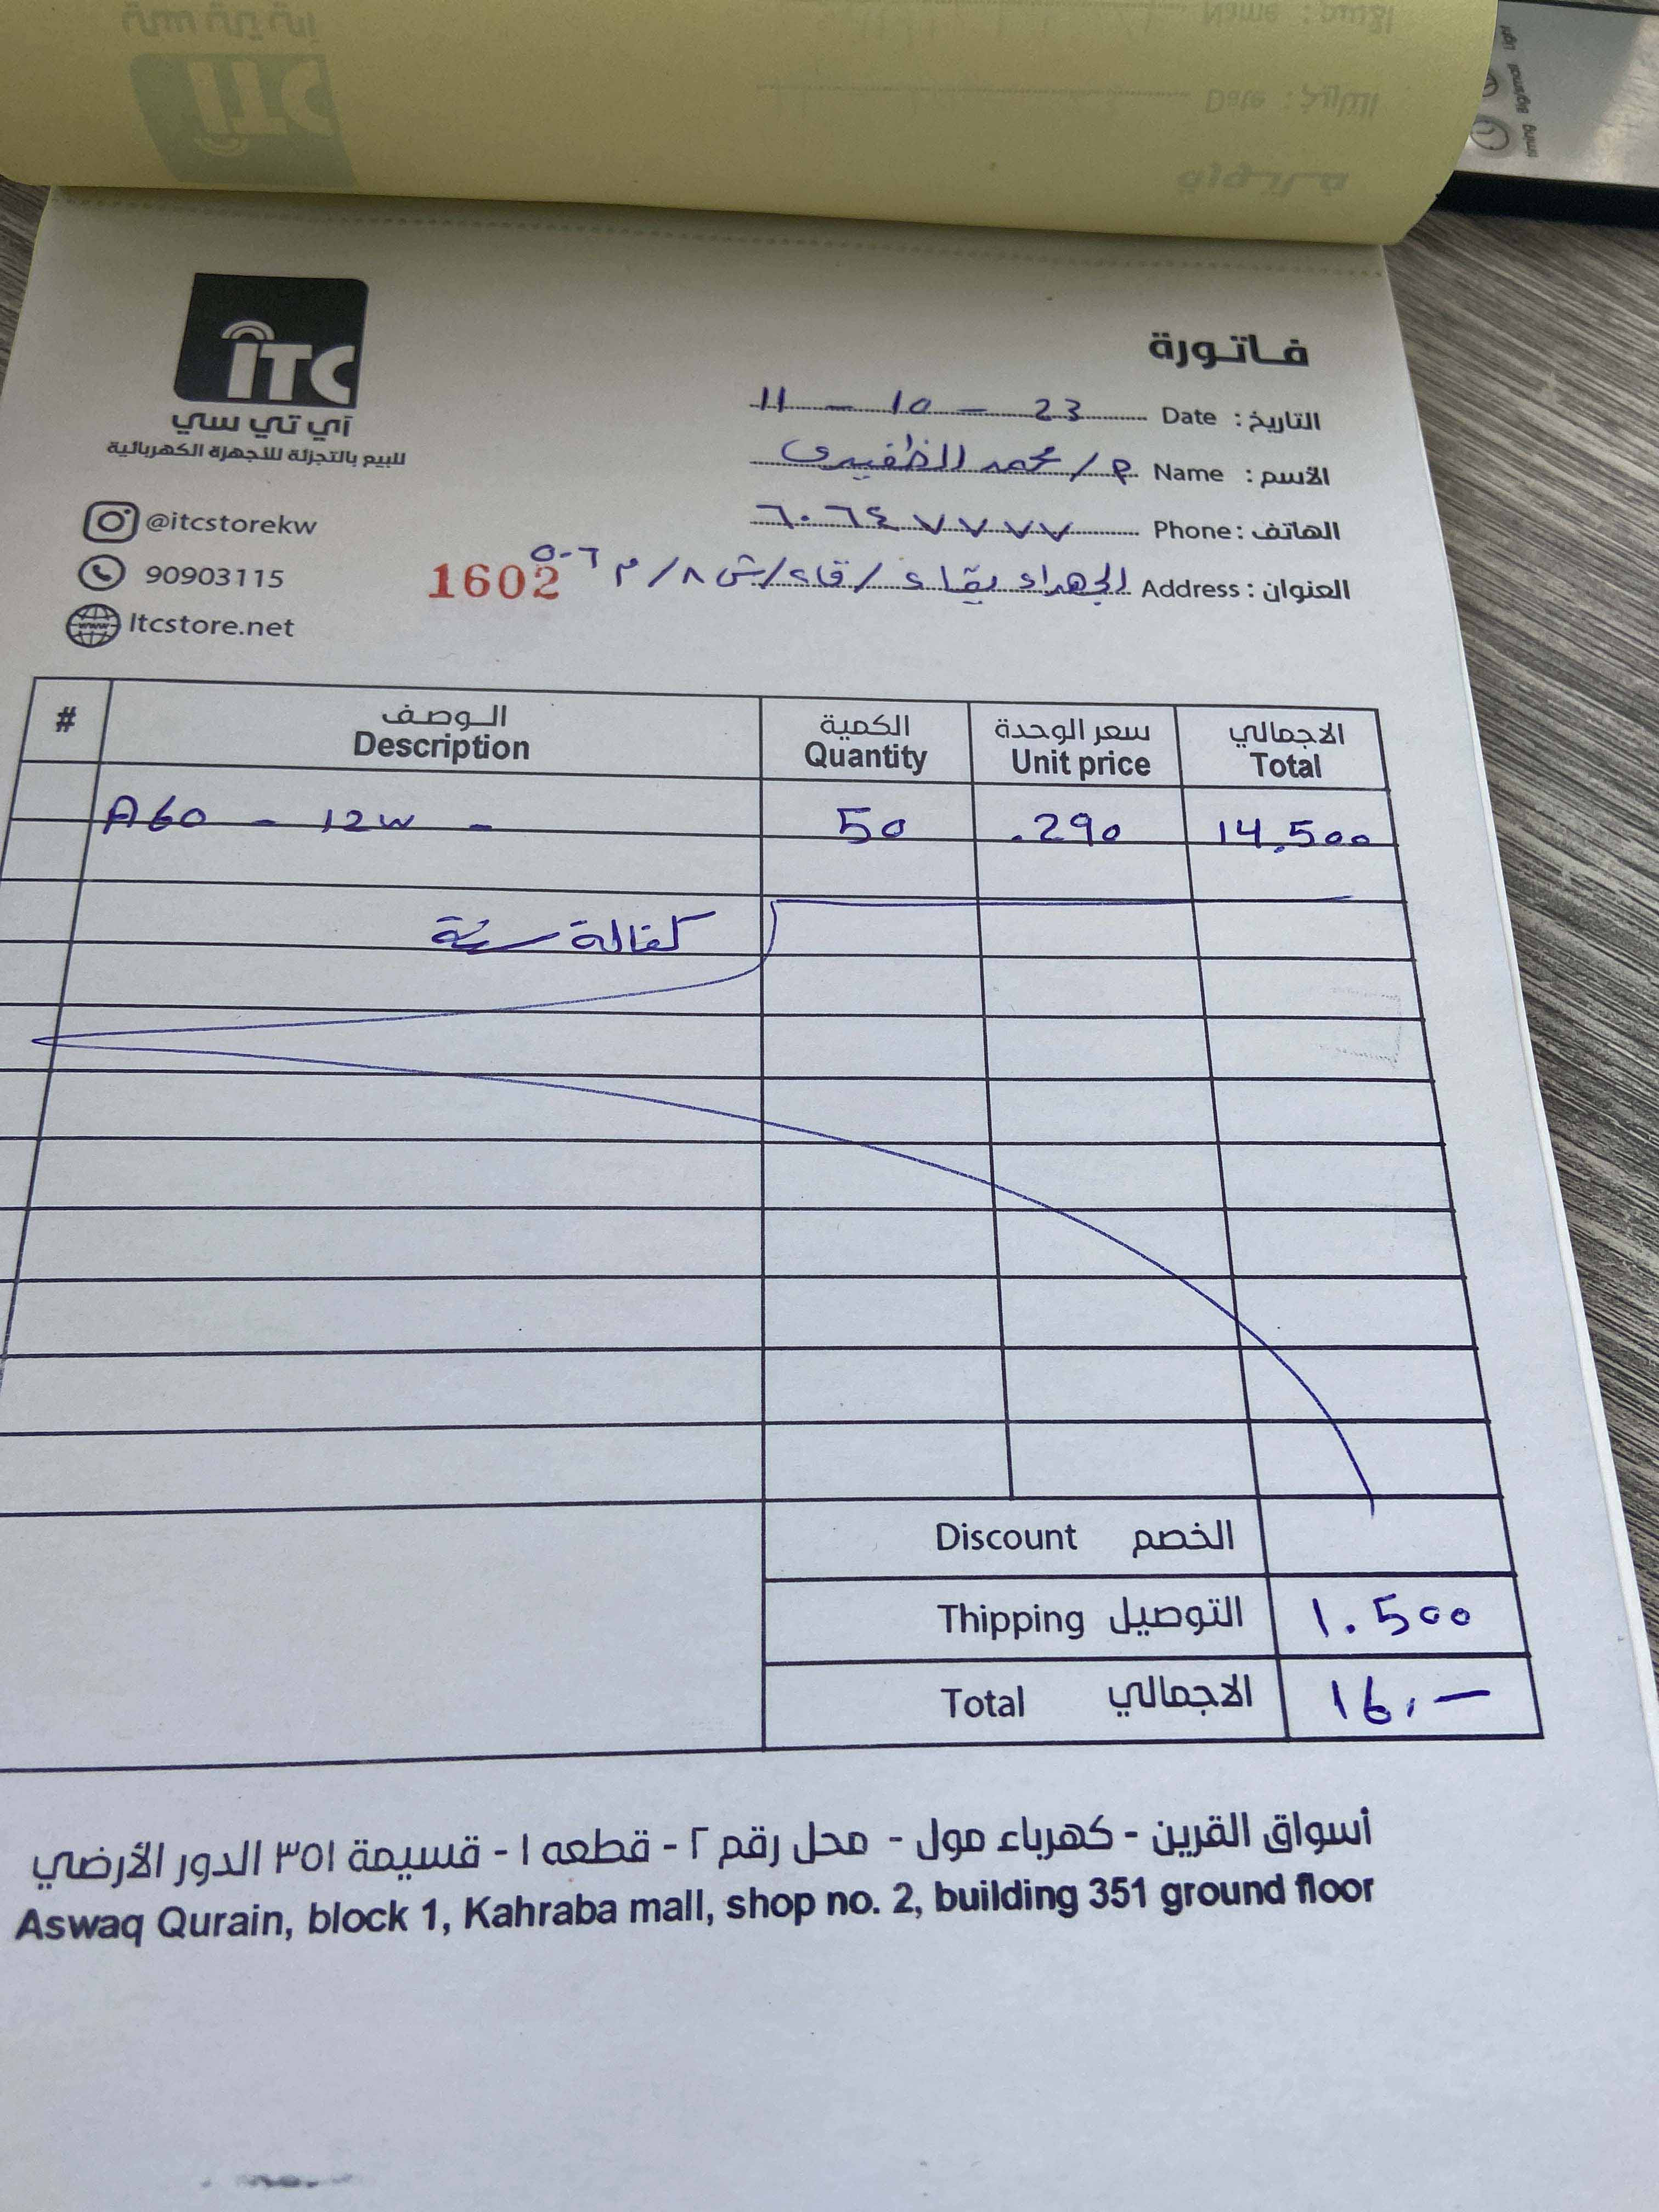 فاتورة
ITC
آي تي سي
للبيع بالتجزئة للأجهزة الكهربائية
@itcstorekw
90903115
Itcstore.net
التاريخ : Date 11 - 10 - 23
الأسم : Name م / محمد الظفيري
الهاتف : Phone ٦٠٦٤٧٧٧٧
العنوان : Address الجهراء / ش ٨ / م ٥٠٦
1602
# الوصف الكمية سعر الوحدة الاجمالي
Description Quantity Unit price Total
A60 - 12W - 50 .290 14.500
كفالة سنة
Discount الخصم
Thipping التوصيل 1.500
Total الاجمالي 16.-
أسواق القرين - كهرباء مول - محل رقم ٢ - قطعه ١ - قسيمة ٣٥١ الدور الأرضي
Aswaq Qurain, block 1, Kahraba mall, shop no. 2, building 351 ground floor